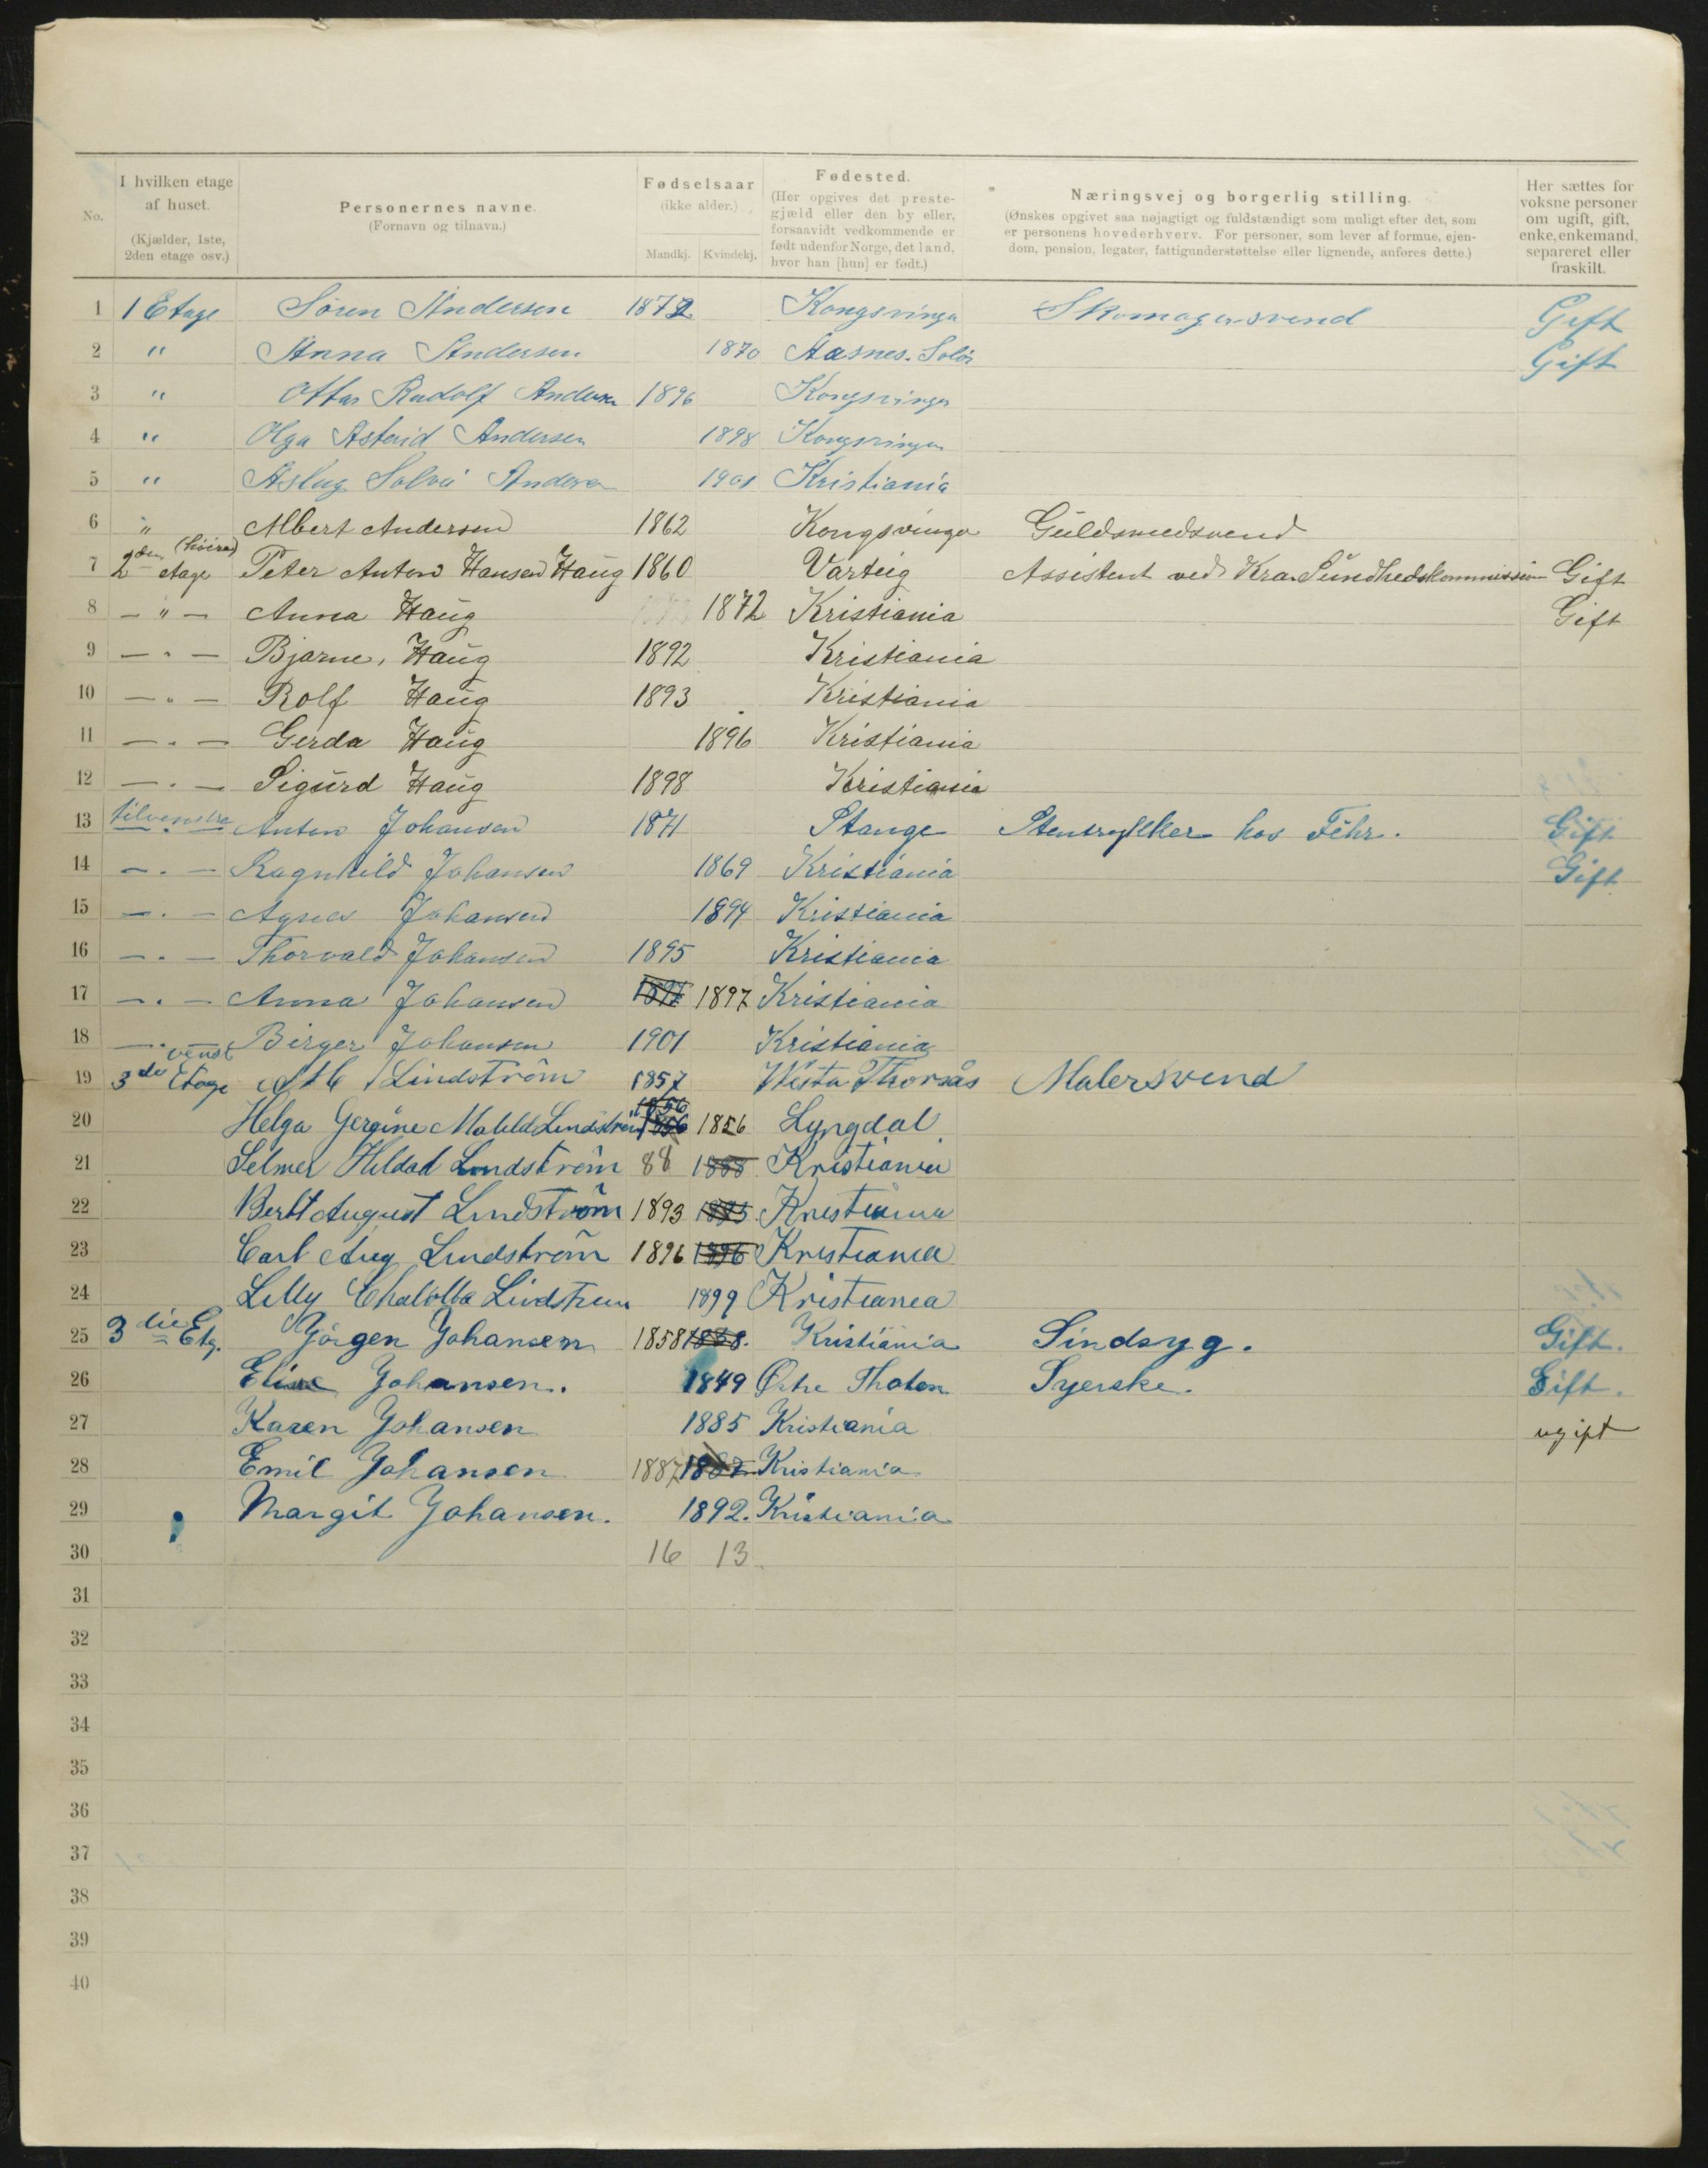 No. I hvilken etage af huset. (Kjælder, 1ste, 2den etage osv.) Personernes navne. (Fornavn og tilnavn.) Fødselsaar (ikke alder.) Mandkj. Kvindekj. Fødested. (Her opgives det prestegjæld eller den by eller, forsaavidt vedkommende er født udenfor Norge, det land, hvor han [hun] er født.) Næringsvej og borgerlig stilling. (Ønskes opgivet saa nøjagtigt og fuldstændigt som muligt efter det, som er personens hovederhverv. For personer, som lever af formue, ejendom, pension, legater, fattigunderstøttelse eller lignende, anføres dette.) Her sættes for voksne personer om ugift, gift, enke, enkemand, separeret eller fraskilt.
1 1 Etage Søren Andersen 1872 Kongsvinger Skomagersvend Gift
2 " Anna Andersen 1870 Aasnes. Solør Gift
3 " Ottar Rudolf Andersen 1896 Kongsvinger
4 " Olga Astrid Andersen 1898 Kongsvinger
5 " Aslug Solvei Andersen 1901 Kristiania
6 " Albert Andersen 1862 Kongsvinger Guldsmedsvend
7 2den etage (høire) Peter Anton Hansen Haug 1860 Varteig Assistent ved Kra. Sundhedskommission Gift
8 — " — Anna Haug 1872 Kristiania Gift
9 — " — Bjarne, Haug 1892 Kristiania
10 — " — Rolf Haug 1893 Kristiania
11 — " — Gerda Haug 1896 Kristiania
12 — " — Sigurd Haug 1898 Kristiania
13 tilvenstre Anton Johansen 1871 Stange Stentrykker hos Fehr. Gift
14 — " — Ragnhild Johansen 1869 Kristiania Gift
15 — " — Agnes Johansen 1894 Kristiania
16 — " — Thorvald Johansen 1895 Kristiania
17 — " — Anna Johansen 1897 1897 Kristiania
18 — " — Birger Johansen 1901 Kristiania
19 3de Etage venst Lindström 1857 Westa Thorsås Malersvend
20 Helga Gergine Matild Lindström 1856 1856 1856 Lyngdal
21 Selmer Hildad Lindström 88 1888 Kristiania
22 Bertt August Lindström 1893 1893 Kristiania
23 Carl Aug Lindström 1896 1896 Kristiania
24 Lilly Chalotta Lindstrum 1899 Kristiania
25 3die Etg. Jörgen Johansen 1858 1858. Kristiania Sindsyg. Gift.
26 Elise Johansen. 1849 Østre Thoten Syerske. Gift.
27 Karen Johansen 1885 Kristiania ugift
28 Emil Johansen 1887 1887 Kristiania
29 Margit Johansen. 1892. Kristiania
30 16 13
31
32
33
34
35
36
37
38
39
40